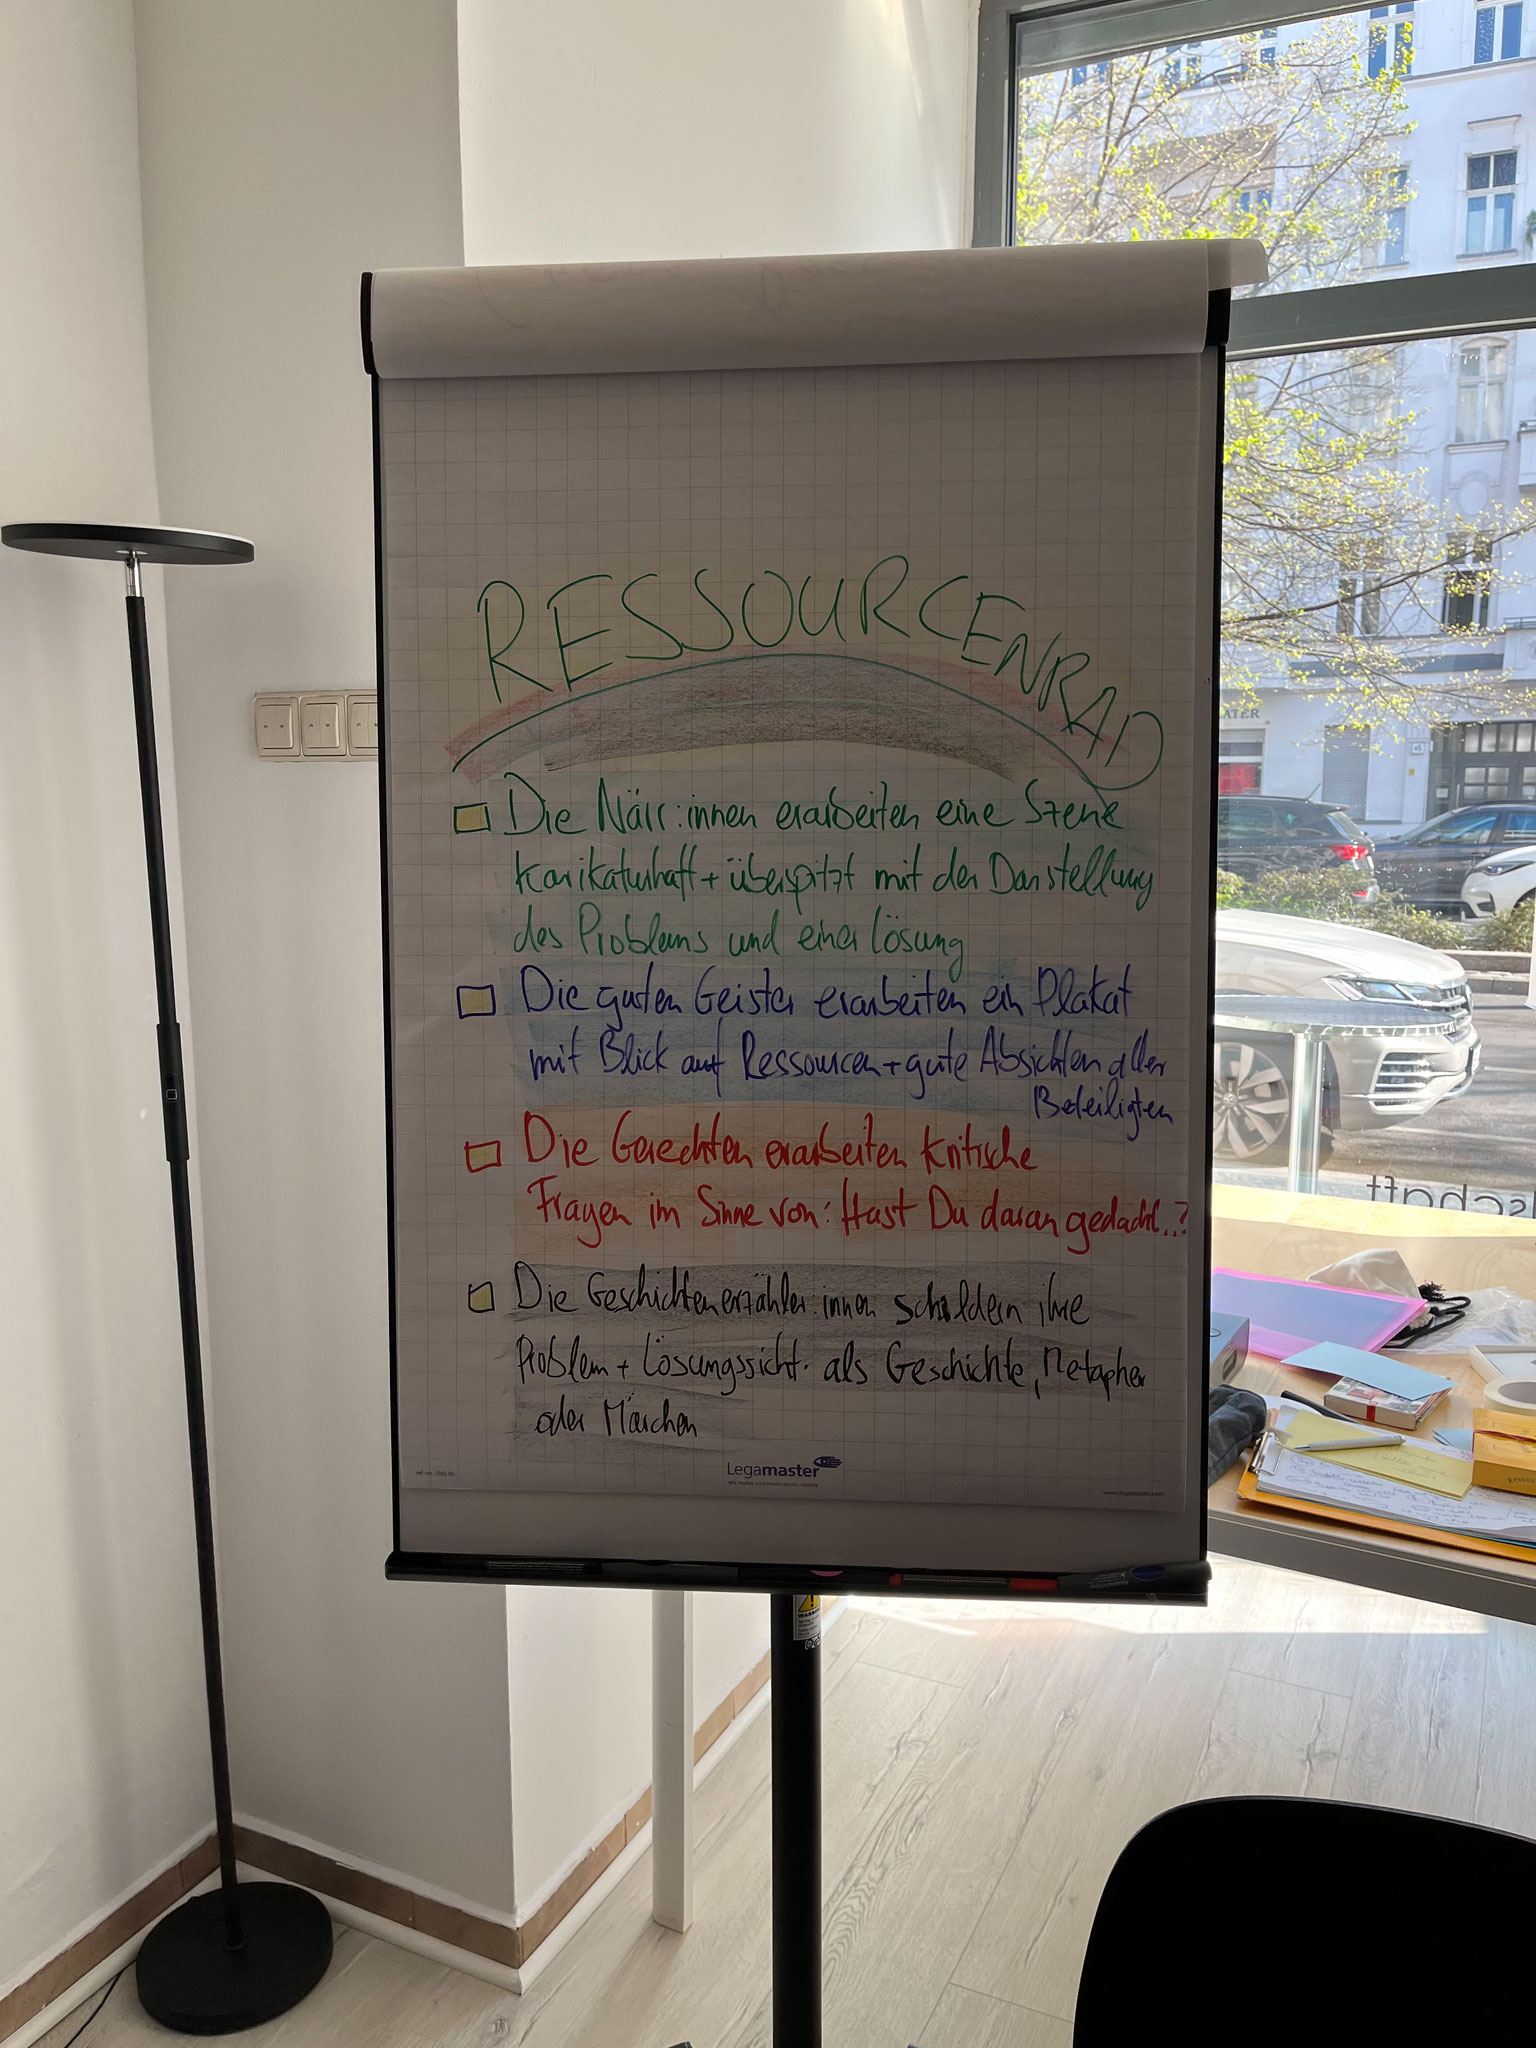 RESSOURCENRAD
Die Närr:innen erarbeiten eine Szene
karikaturhaft + überspitzt mit der Darstellung
des Problems und einer Lösung
Die guten Geister erarbeiten ein Plakat
mit Blick auf Ressourcen + gute Absichten aller
Beteiligten
Die Gerechten erarbeiten kritische
Fragen im Sinne von: Hast Du daran gedacht..?
Die Geschichtenerzähler:innen schildern ihre
Problem + Lösungssicht als Geschichte, Metapher
oder Märchen
Legamaster
www.legamaster.com
schaft